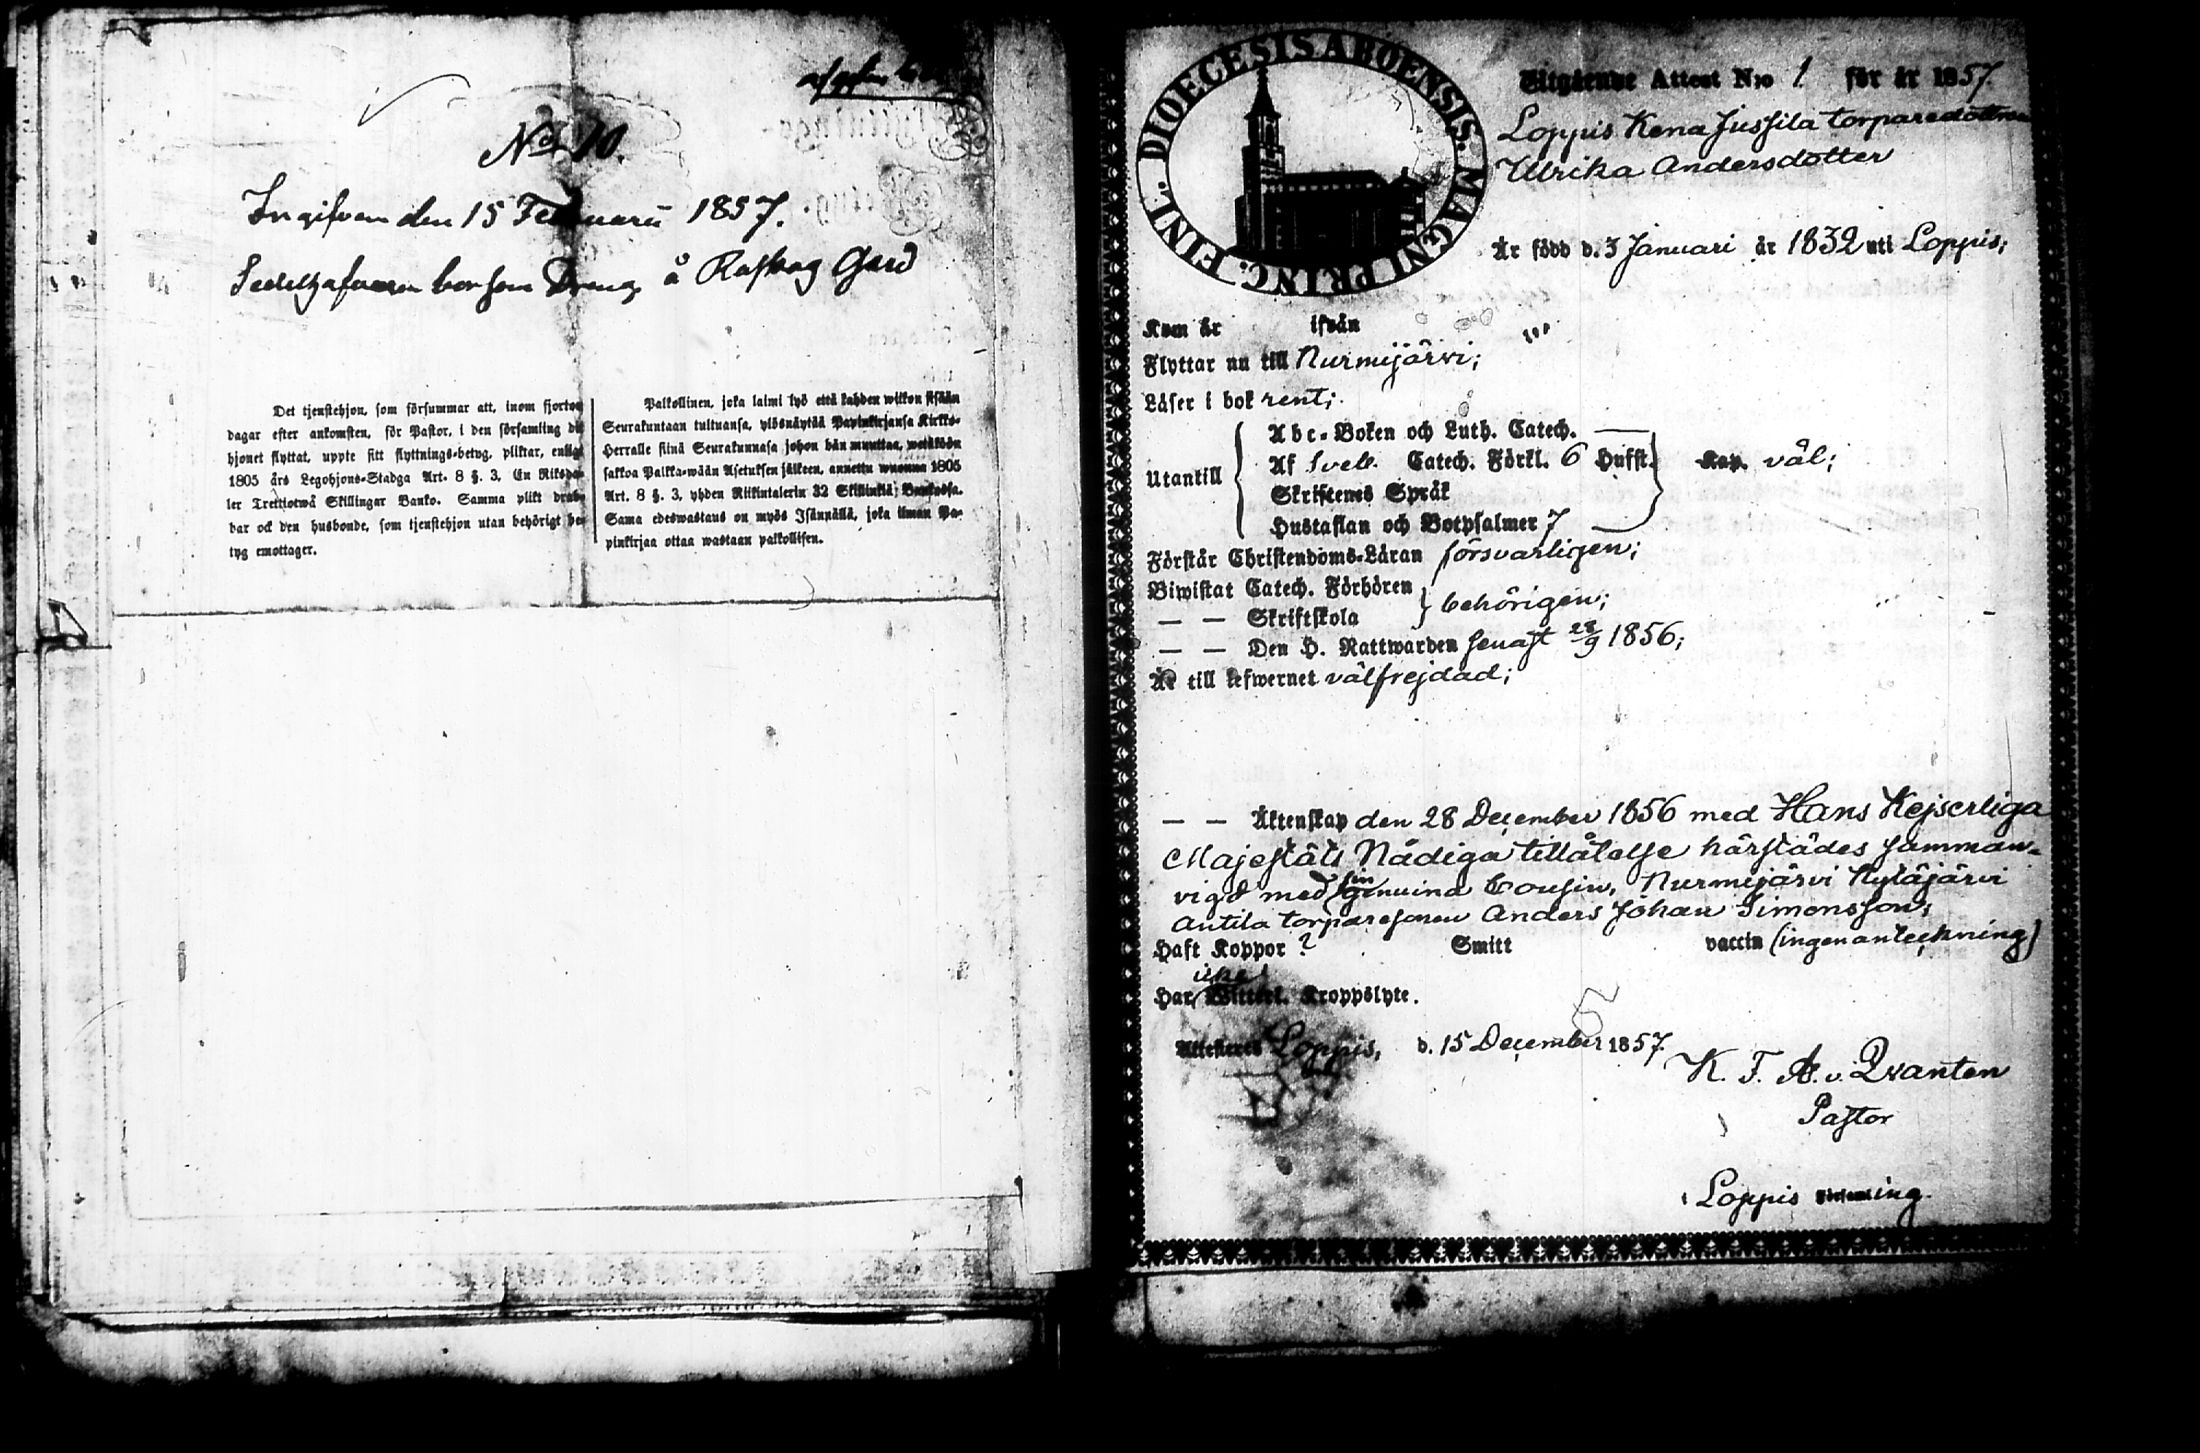 No 10.
Ingifven den 15 Februarii 1857.
Sedelhafvaren bor som Dreng å Gård
Det tjenstehjon, som försummar att, inom fjorton
dagar efter ankomsten, för Pastor, i den församling dit
hjonet flyttat, uppte sitt flyttnings-betyg, pliktar, enligt
1805 års Legohjons-Stadga Art. 8 §. 3, En Riksda-
ler Trettiotwå Skillingar Banko. Samma plikt drab-
bar ock den husbonde, som tjenstehjon utan behörigt be-
tyg emottager.
Palkollinen, joka laimi lyö että kahden wiikon sisään
Seurakuntaan tultuansa, ylösnäytää Papinkirjansa Kirkko-
Herralle siinä Seurakunnasa johon hän muuttaa, wetäköön
sakkoa Palka-wään Asetuksen jälkeen, annettu wuonna 1805
Art. 8 §. 3, yhden Riikintalerin 32 Skillinkiä; Bankossa.
Sama edeswastaus on myös Isännällä, joka ilman Pa-
pinkirjaa ottaa wastaan palkollisen.
DIOECESIS ABOENSIS. MAGNI PRINC. FINL.
Utgående Attest N:ro 1 för år 1857.
Loppis Kena Jussila torparedottren
Ulrika Andersdotter
Är född d. 3 Januari år 1832 uti Loppis;
Kom år ifrån
Flyttar nu till Nurmijärvi;
Läser i bok rent;
Utantill
Abc-Boken och Luth. Catech. —
Af Sveb. Catech. Förkl. 6 Hufst.
Skriftenes Språk
Hustaflan och Botpsalmer 7 —
Kap. väl;
Förstår Christendoms-Läran försvarligen;
Biwistat Catech. Förhören
— — Skriftskola
behörigen;
— — Den H. Nattwarden senast 28/9 1856;
Är till lefwernet välfrejdad;
— — Äktenskap den 28 December 1856 med Hans Kejserliga
Majestäts Nådiga tillåtelse härstädes samman-
vigd med sin genuina Cousin, Nurmijärvi Kytäjärvi
Antila torparesonen Anders Johan Simonsson;
Haft Koppor ? Smitt vaccin (ingen anteckning)
icke
Har Witterl. Kroppslyte.
Attesteras Loppis, d. 15 December 1857.
K. F. A. v. Qvanten
Pastor
i Loppis Församling.